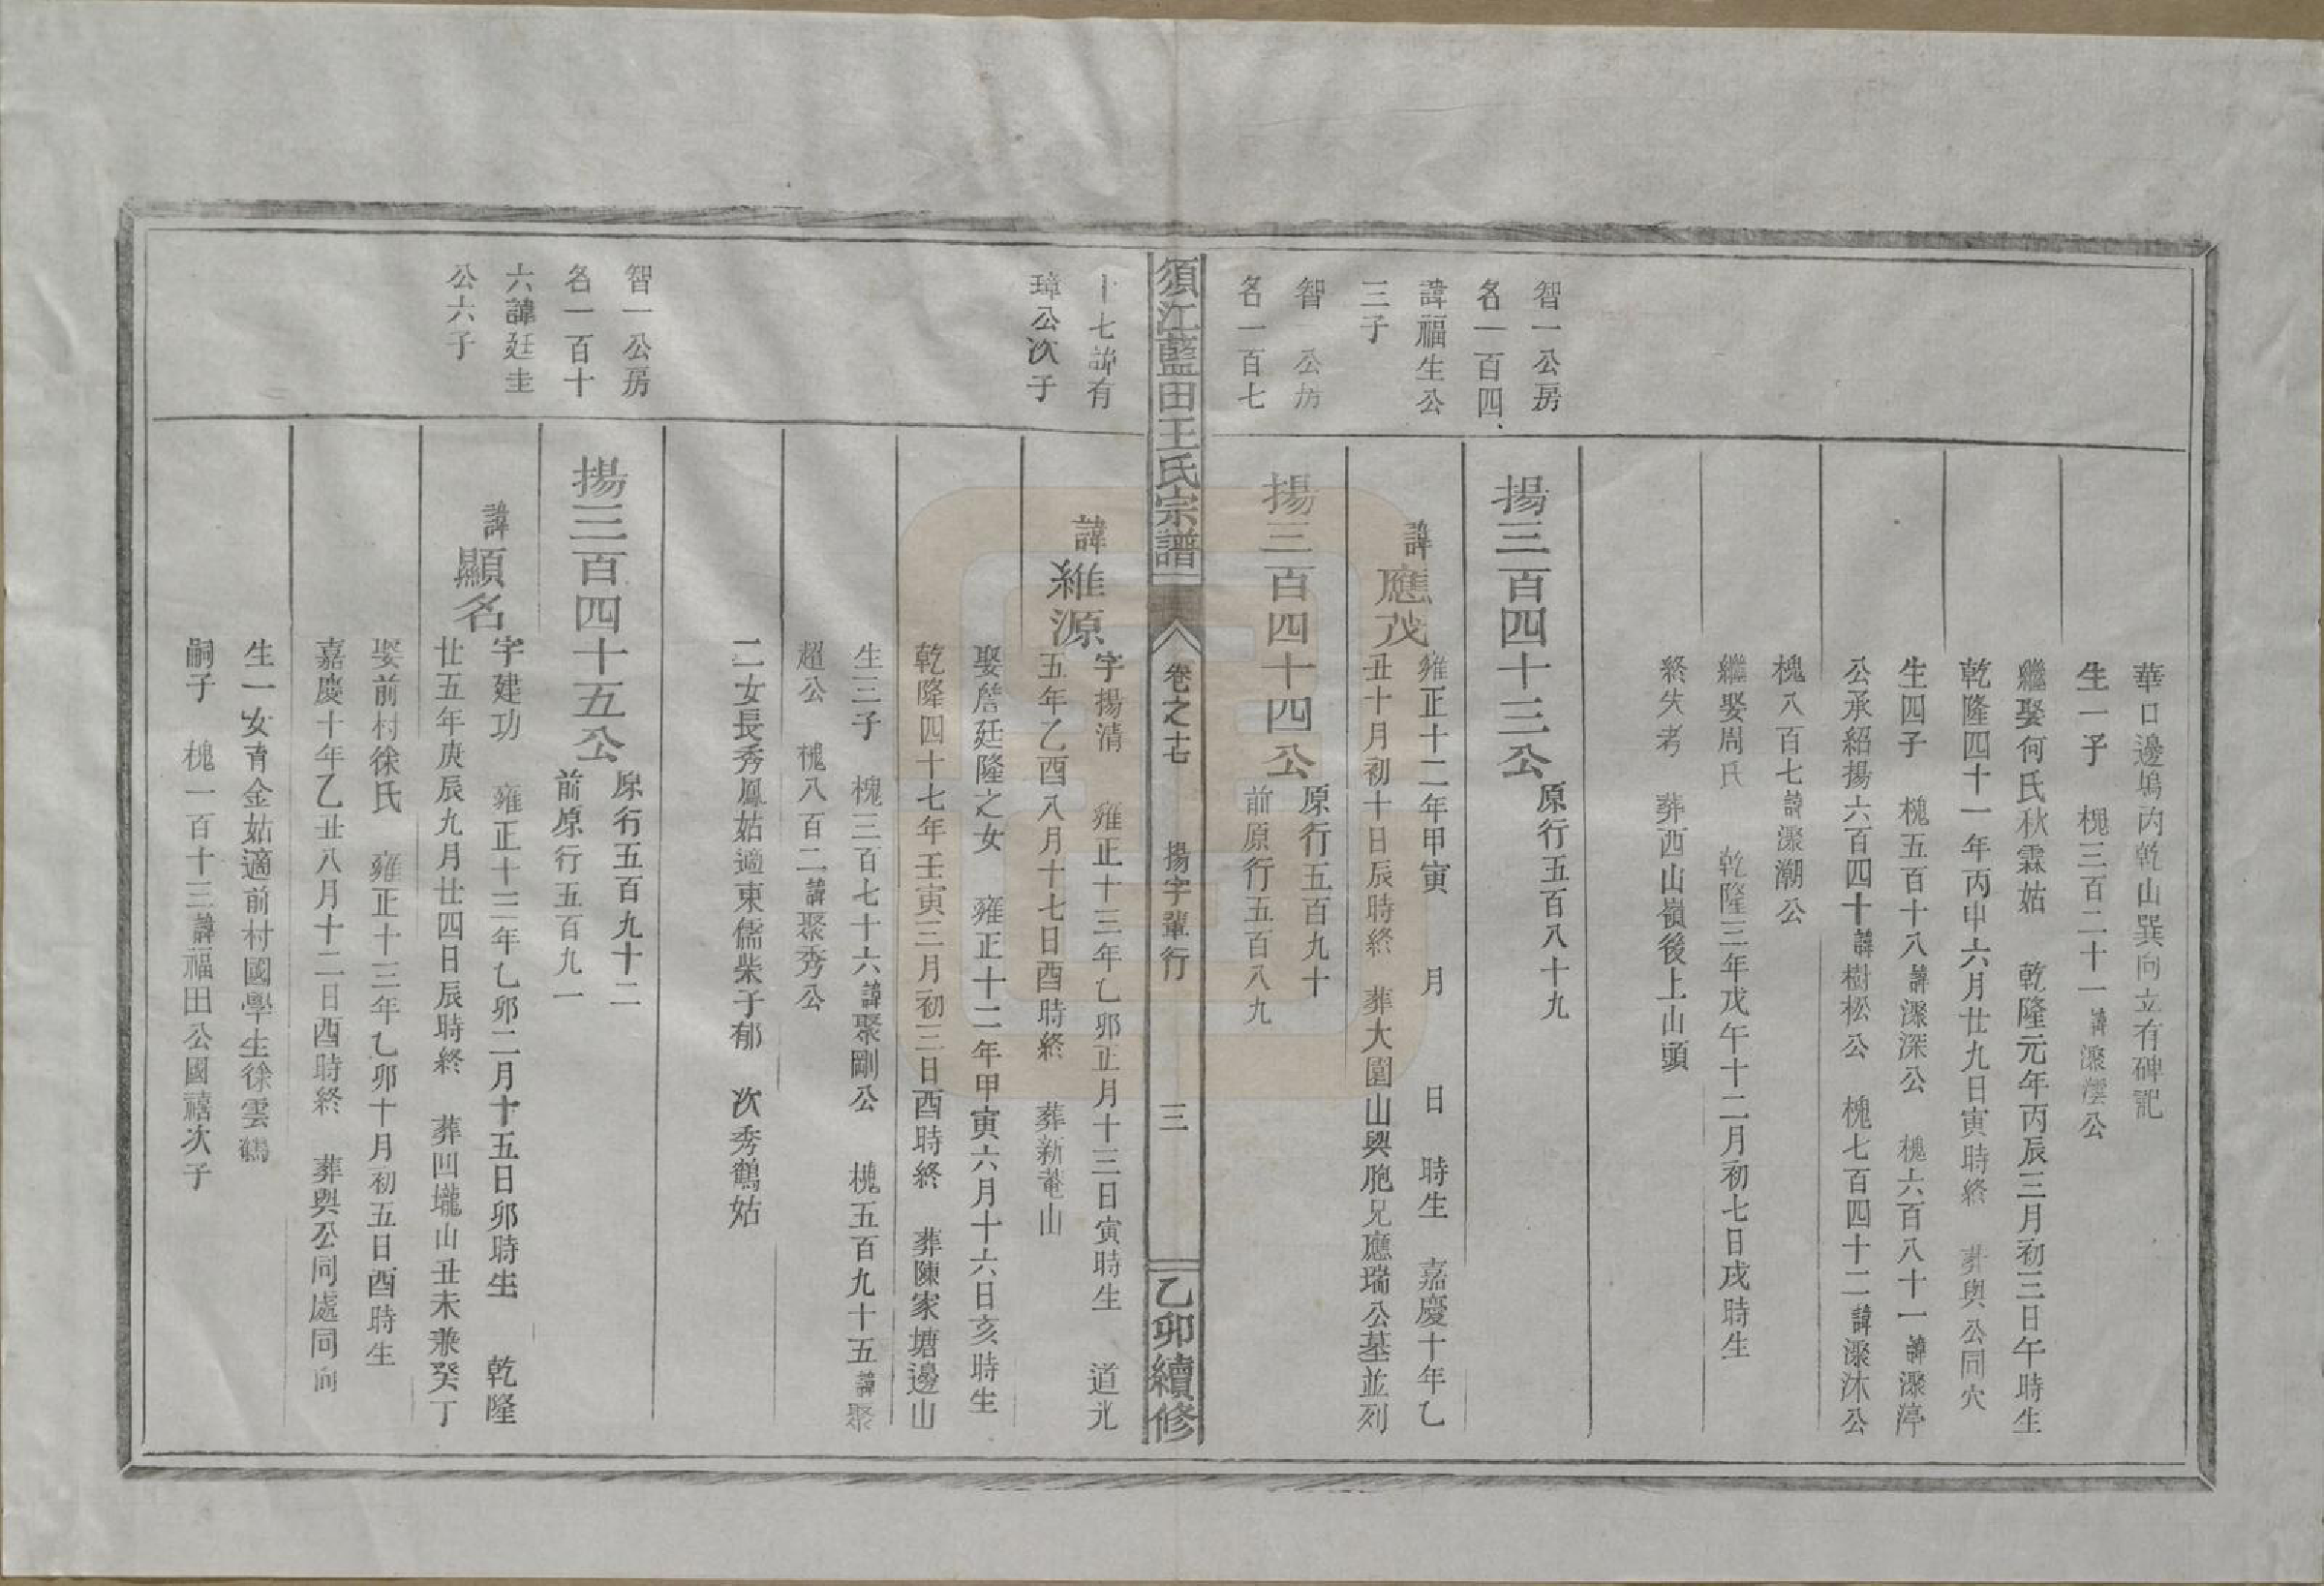 華口邊塢丙乾山巽向立有碑記
生一子　槐三百二十一諱濴澐公
繼娶何氏秋霖姑　乾隆元年丙辰三月初三日午時生
乾隆四十一年丙申六月廿九日寅時終　葬與公同穴
生四子　槐五百十八諱濴深公　槐六百八十一諱濴渟
公承紹揚六百四十諱樹松公　槐七百四十二諱濴沐公
槐八百七諱濴潮公
繼娶周氏　乾隆三年戊午十二月初七日戌時生
終失考　葬西山嶺後上山頭
智一公房
名一百四
諱福生公
三子
揚三百四十三公
原行五百八十九
諱應茂
雍正十二年甲寅　月　日　時生　嘉慶十年乙
丑十月初十日辰時終　葬大園山與胞兄應瑞公墓並列
智　公房
名一百七
揚三百四十四公
原行五百九十
前原行五百八九
須江藍田王氏宗譜
卷之十七
揚字輩行
三
乙卯續修
十七諱有
璋公次子
諱維源
字揚清　雍正十三年乙卯正月十三日寅時生　道光
五年乙酉八月十七日酉時終　葬新菴山
娶詹廷隆之女　雍正十二年甲寅六月十六日亥時生
乾隆四十七年壬寅三月初三日酉時終　葬陳家塘邊山
生三子　槐三百七十六諱聚剛公　槐五百九十五諱聚
超公　槐八百二諱聚秀公
二女長秀鳳姑適東儒柴子郁　次秀鶴姑
智一公房
名一百十
六諱廷圭
公六子
揚三百四十五公
原行五百九十二
前原行五百九一
諱顯名
字建功　雍正十三年乙卯二月十五日卯時生　乾隆
廿五年庚辰九月廿四日辰時終　葬回壠山丑未兼癸丁
娶前村徐氏　雍正十三年乙卯十月初五日酉時生
嘉慶十年乙丑八月十二日酉時終　葬與公同處同向
生一女育金姑適前村國學生徐雲鶴
嗣子　槐一百十三諱福田公國禧次子